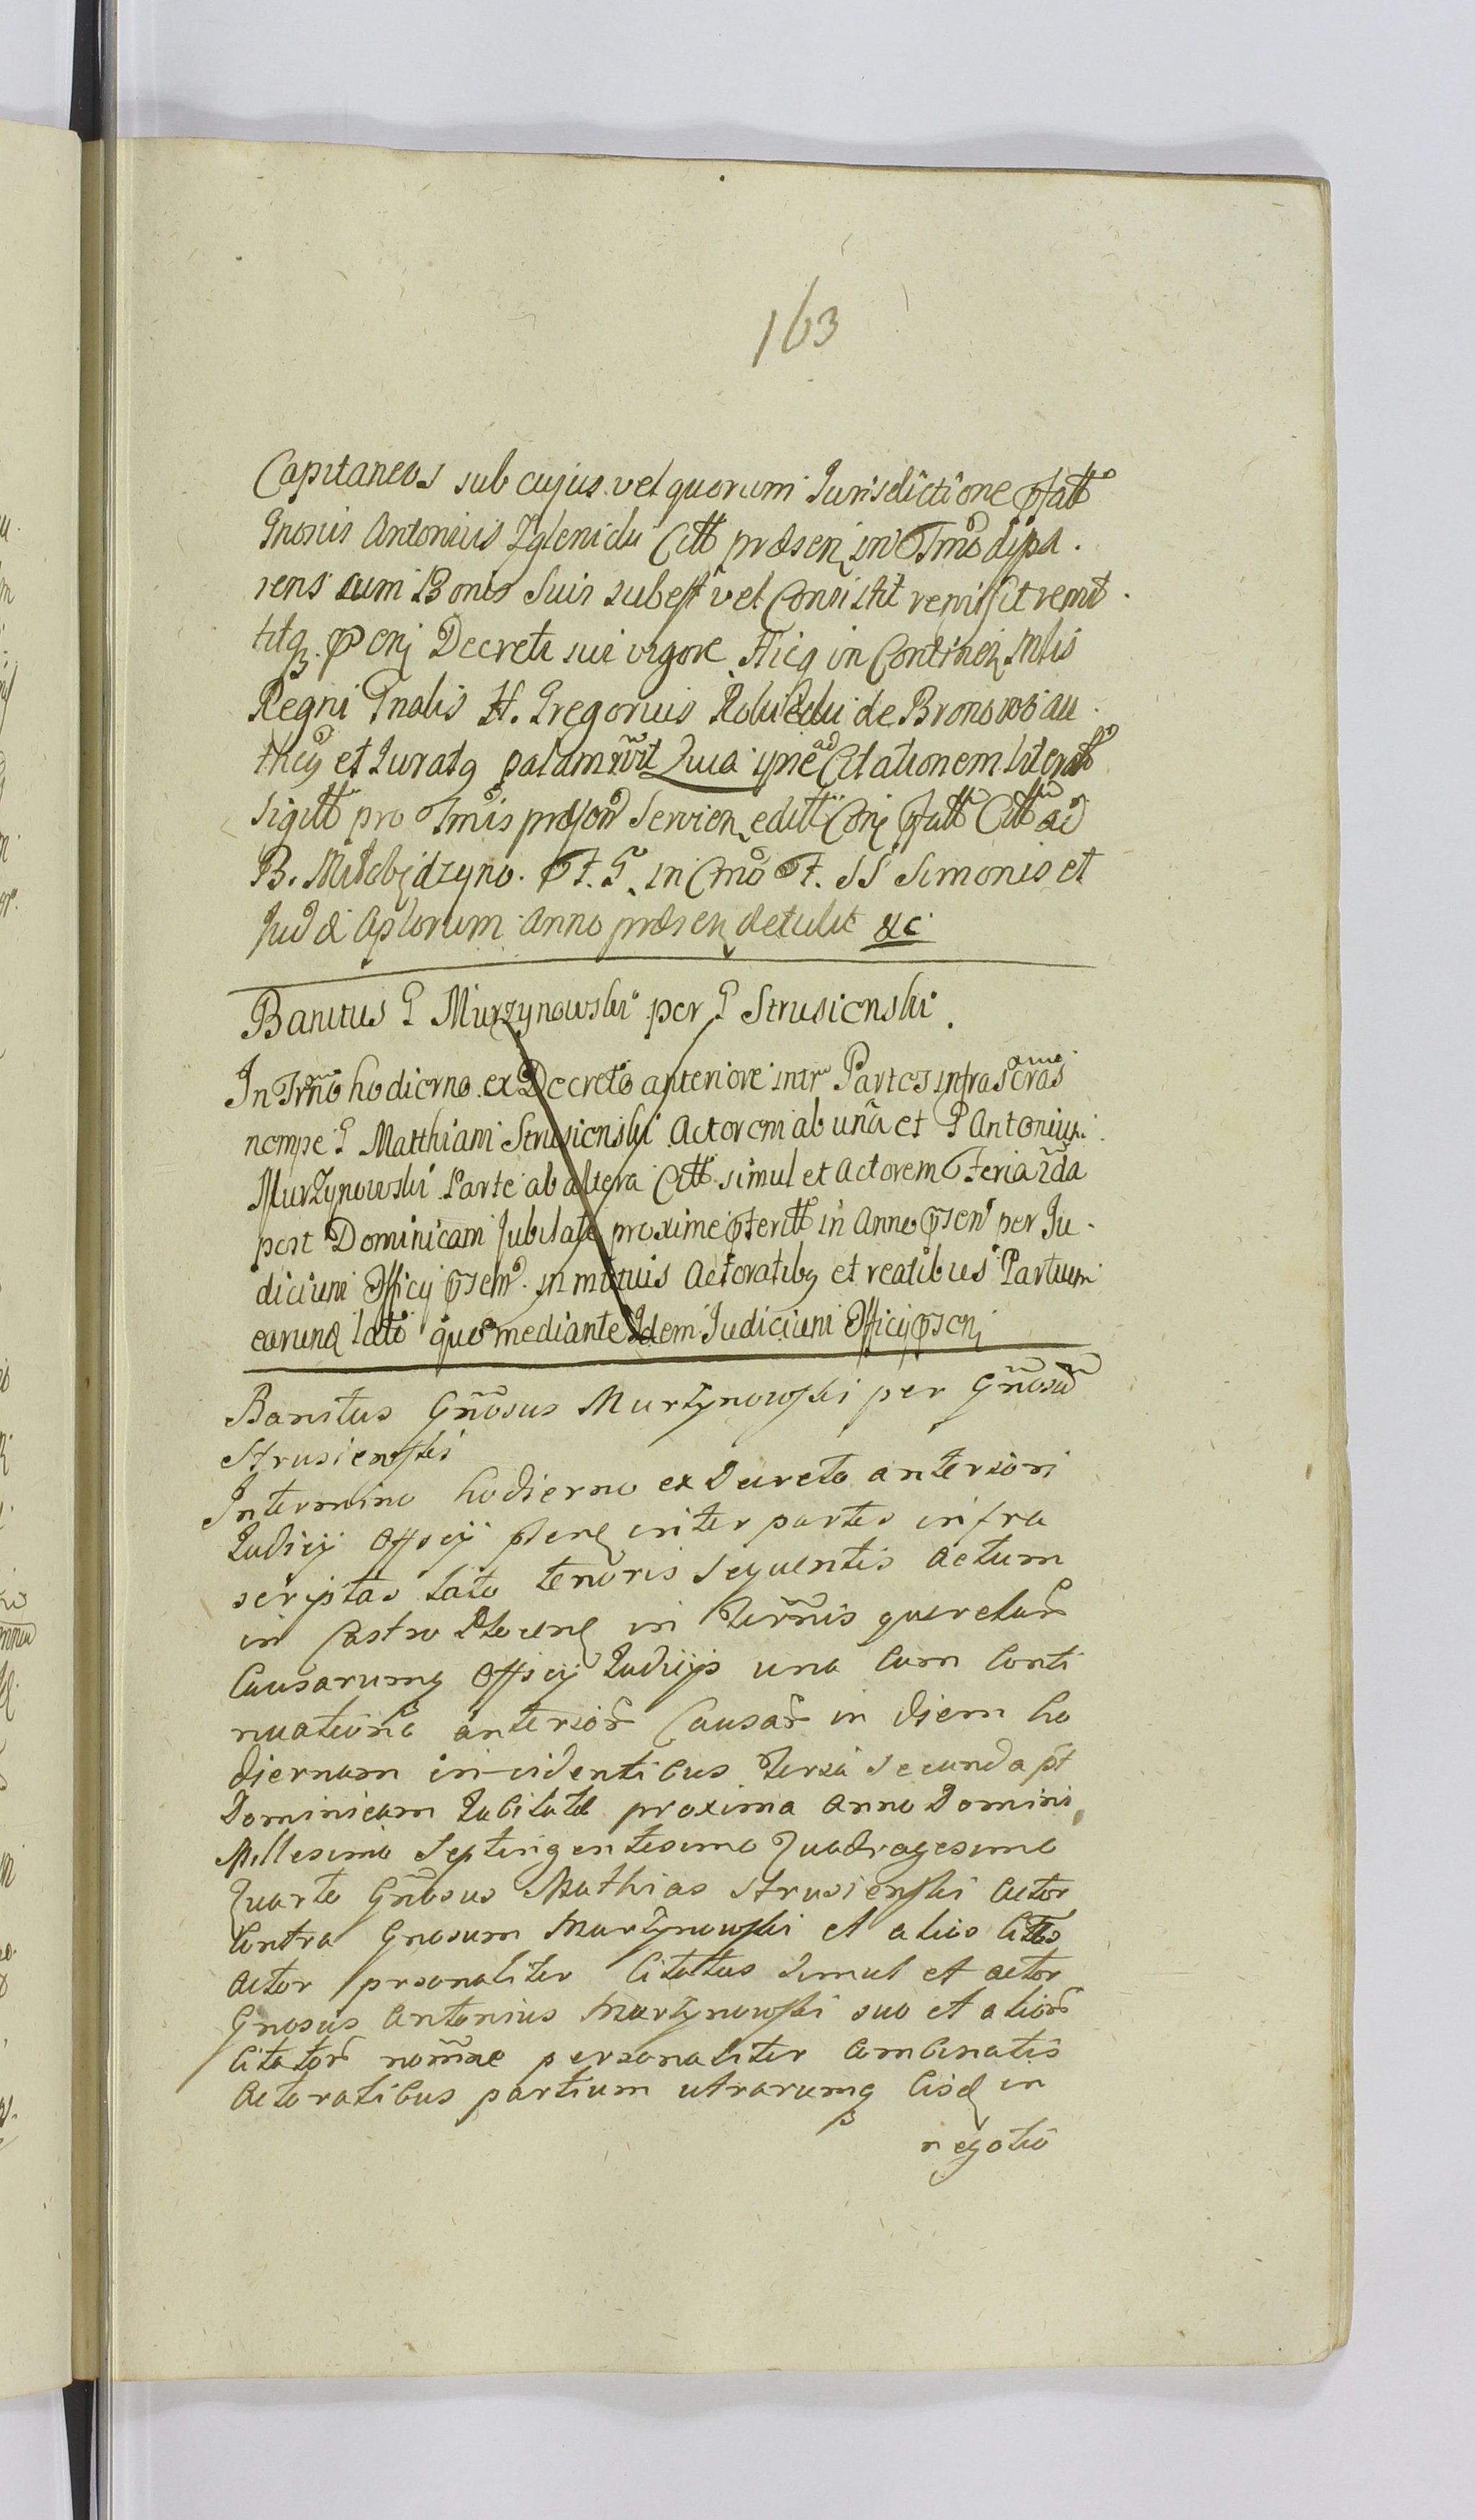 163
Capitaneos sub cujus vel quorum Jurisdictione
Gnosus Antonius Zglenicki Citt præsen in Tmo dispa.
rens cum Bonis Suis subest vel Consistit remisit remit.
titq. Decreti sui vigore Hicq in Continen Mtis
Regni Gnalis H. Gregorius de Bronowo au.
thcq et Juratq palam rvit Quia ipse ad Citationem literat
Sigitt pro Tmis præsen Servien editt Citt ad
B. F. in Cmo F. SS Simonis et
Judæ Aplorum Anno præsen detulit &c
Banitus G Murzynowski per G Strusienski.
In Trno hodierno ex Decreto anteriore intr Partes infrascras
nempe G Matthiam Strusienski Actorem ab una et G Antonium
Murzynowski Parte ab altera Citt simul et Actorem Feria 2da
post Dominicam Jubilate proxime pteritt in Anno psen per Ju.
dicium Officij psen in mutuis Actoratibq et reatibus Partium
earund lato quo mediante Idem Judicium Officij psen
Banitus Gnosus Murzynowski per Gnosum
Strusienski
In termino hodierno ex Decreto anteriori
Judicij Officij psen inter partes infra
scriptas lato tenoris sequentis Actum
in Castro Plocen in Termis querelar
Causarumq Officij Judicijs una cum Conti
nuatione anterior Causar in diem ho
diernam incidentibus Feria Secunda pt
Dominicam Jubilate proxima Anno Domini
Millesimo Septingentesimo Quadragesimo
Quarto Gnosus Mathias Strusienski Actor
Contra Gnosum Murzynowski et alios Cittos
Actor prsonaliter Citatus simul et actor
Gnosus Antonius Murzynowski suo et alior
Citator nomine personaliter Combinatis
Actoratibus partium utrarumq Eisd in
negotio